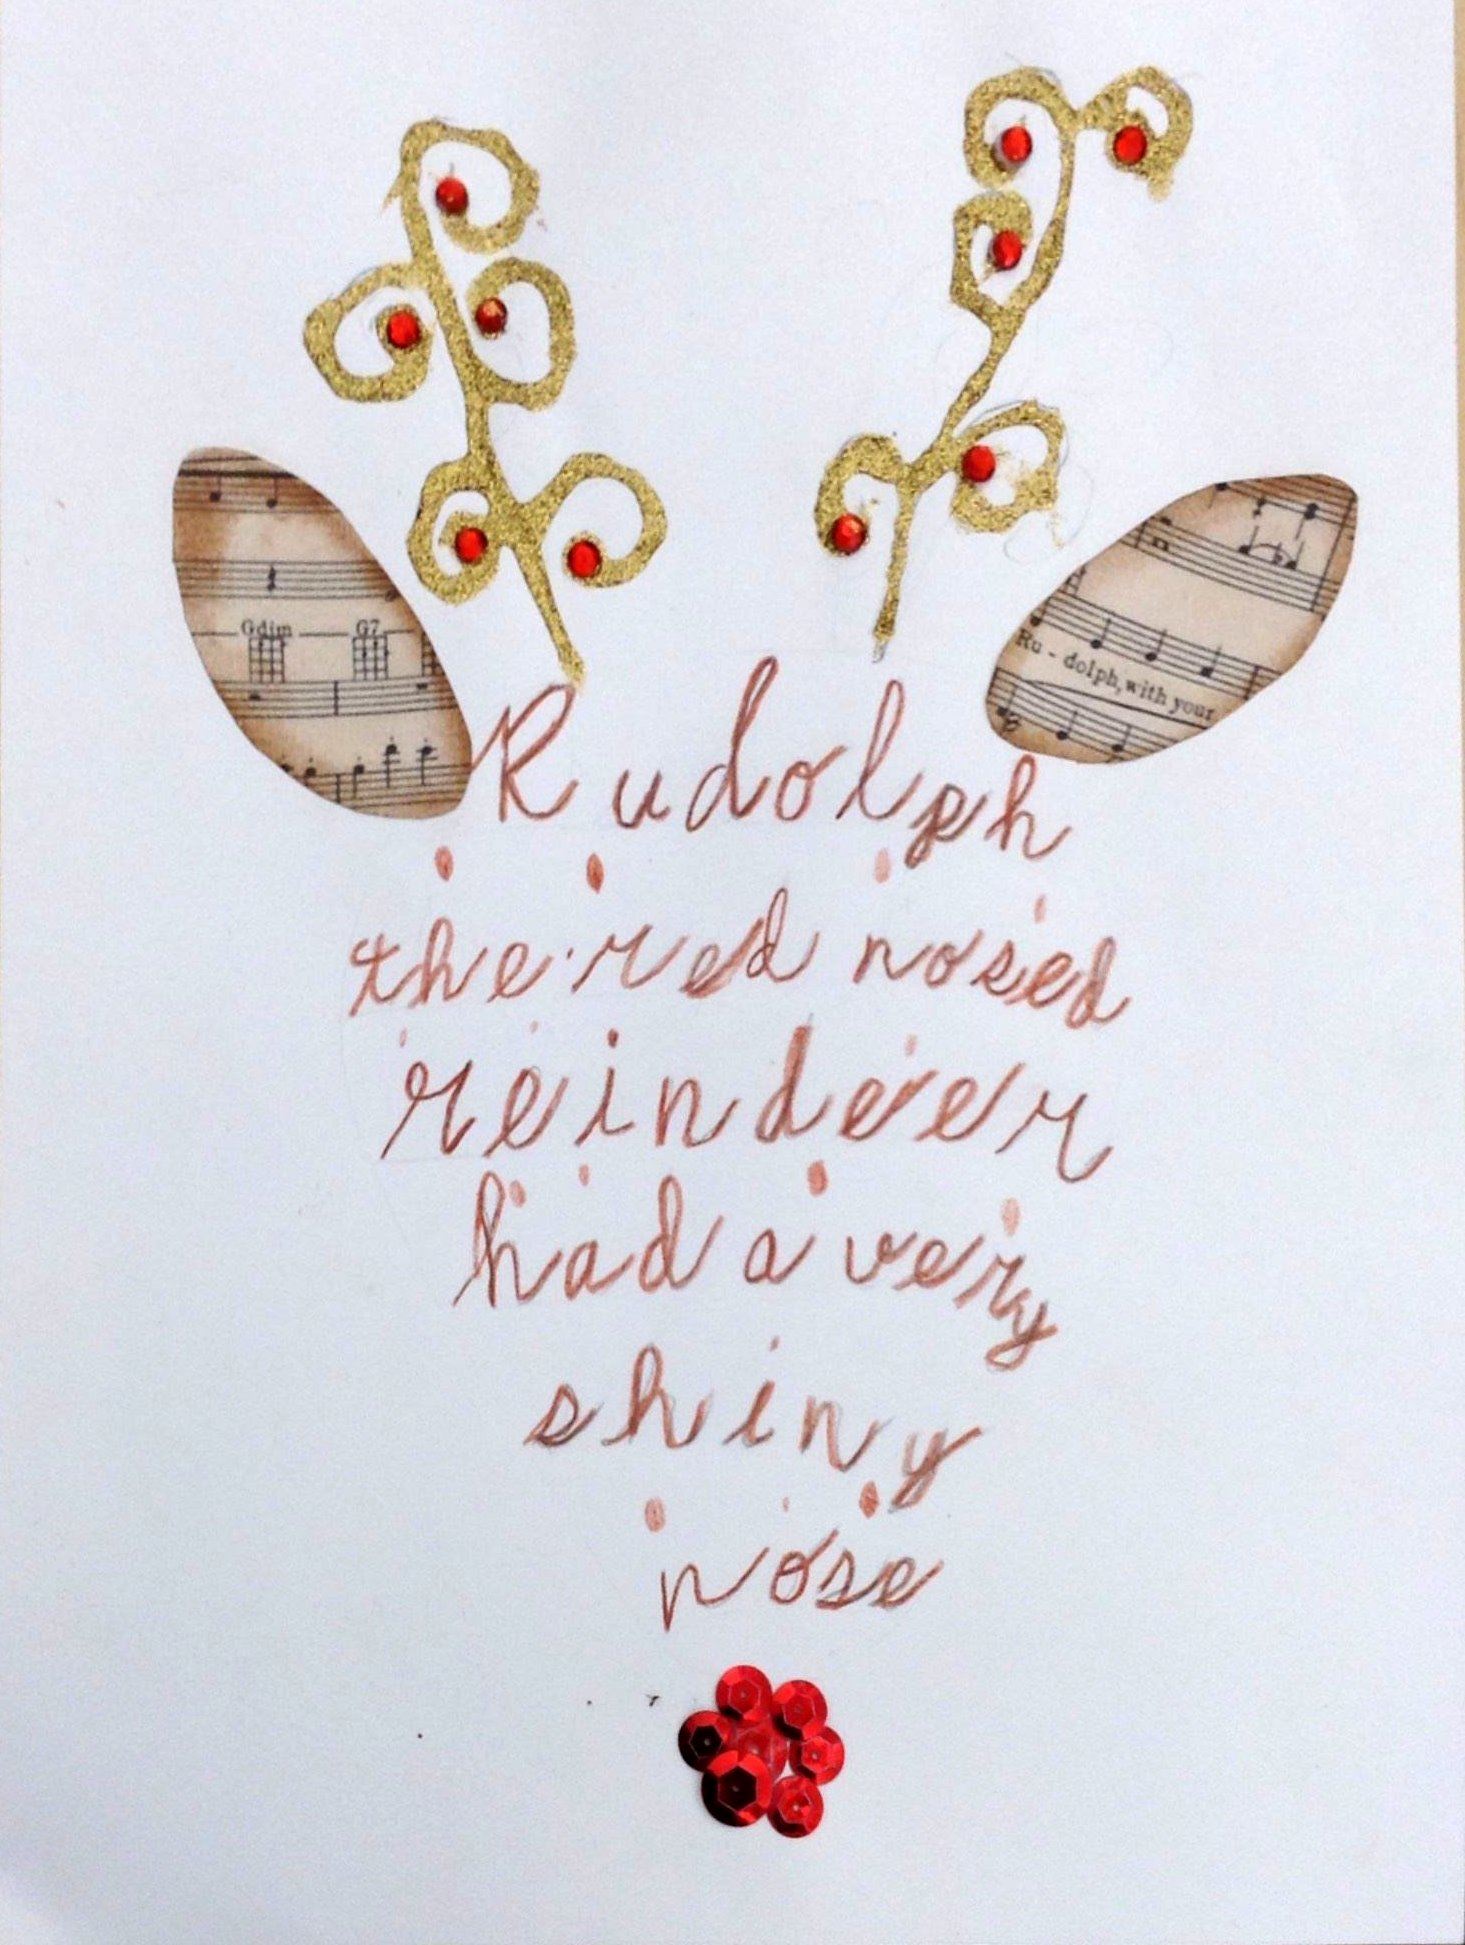 Gdim G7
Ru - dolph, with your
Rudolph
the red nosed
reindeer
had a very
shiny
nose